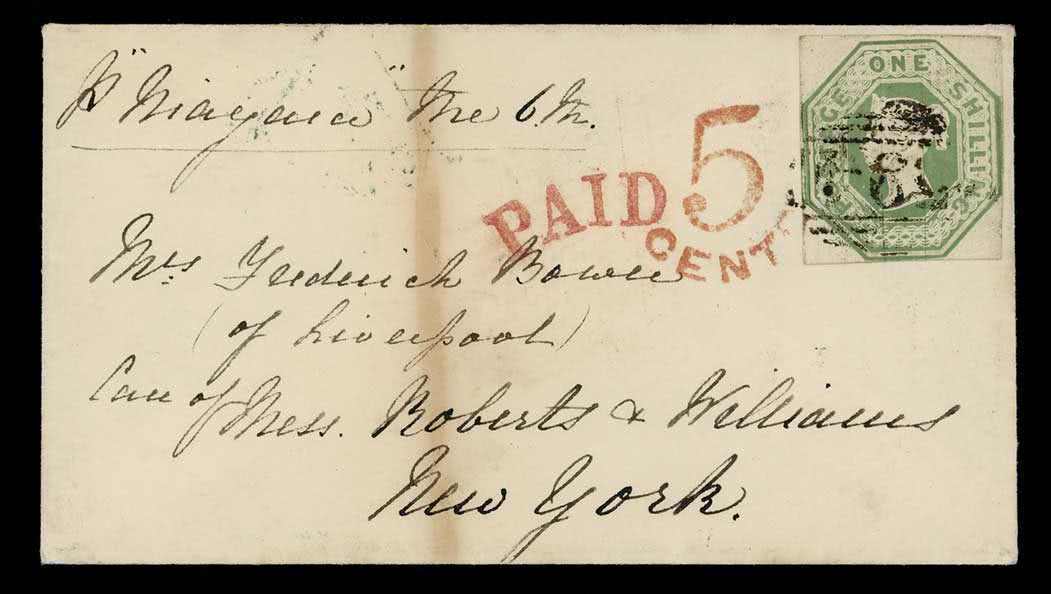 pr "Niagara" the 6th.
PAID
5
CENTS
POSTAGE ONE SHILLING
Mrs Frederick Bowen
(of Liverpool)
Care of Mess. Roberts & Williams
New York.